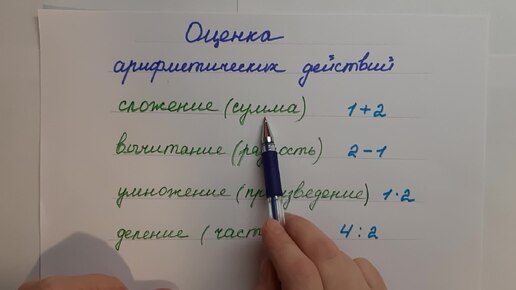 Оценка
арифметических действий
сложение (сумма) 1+2
вычитание (разность) 2-1
умножение (произведение) 1·2
деление (част 4:2